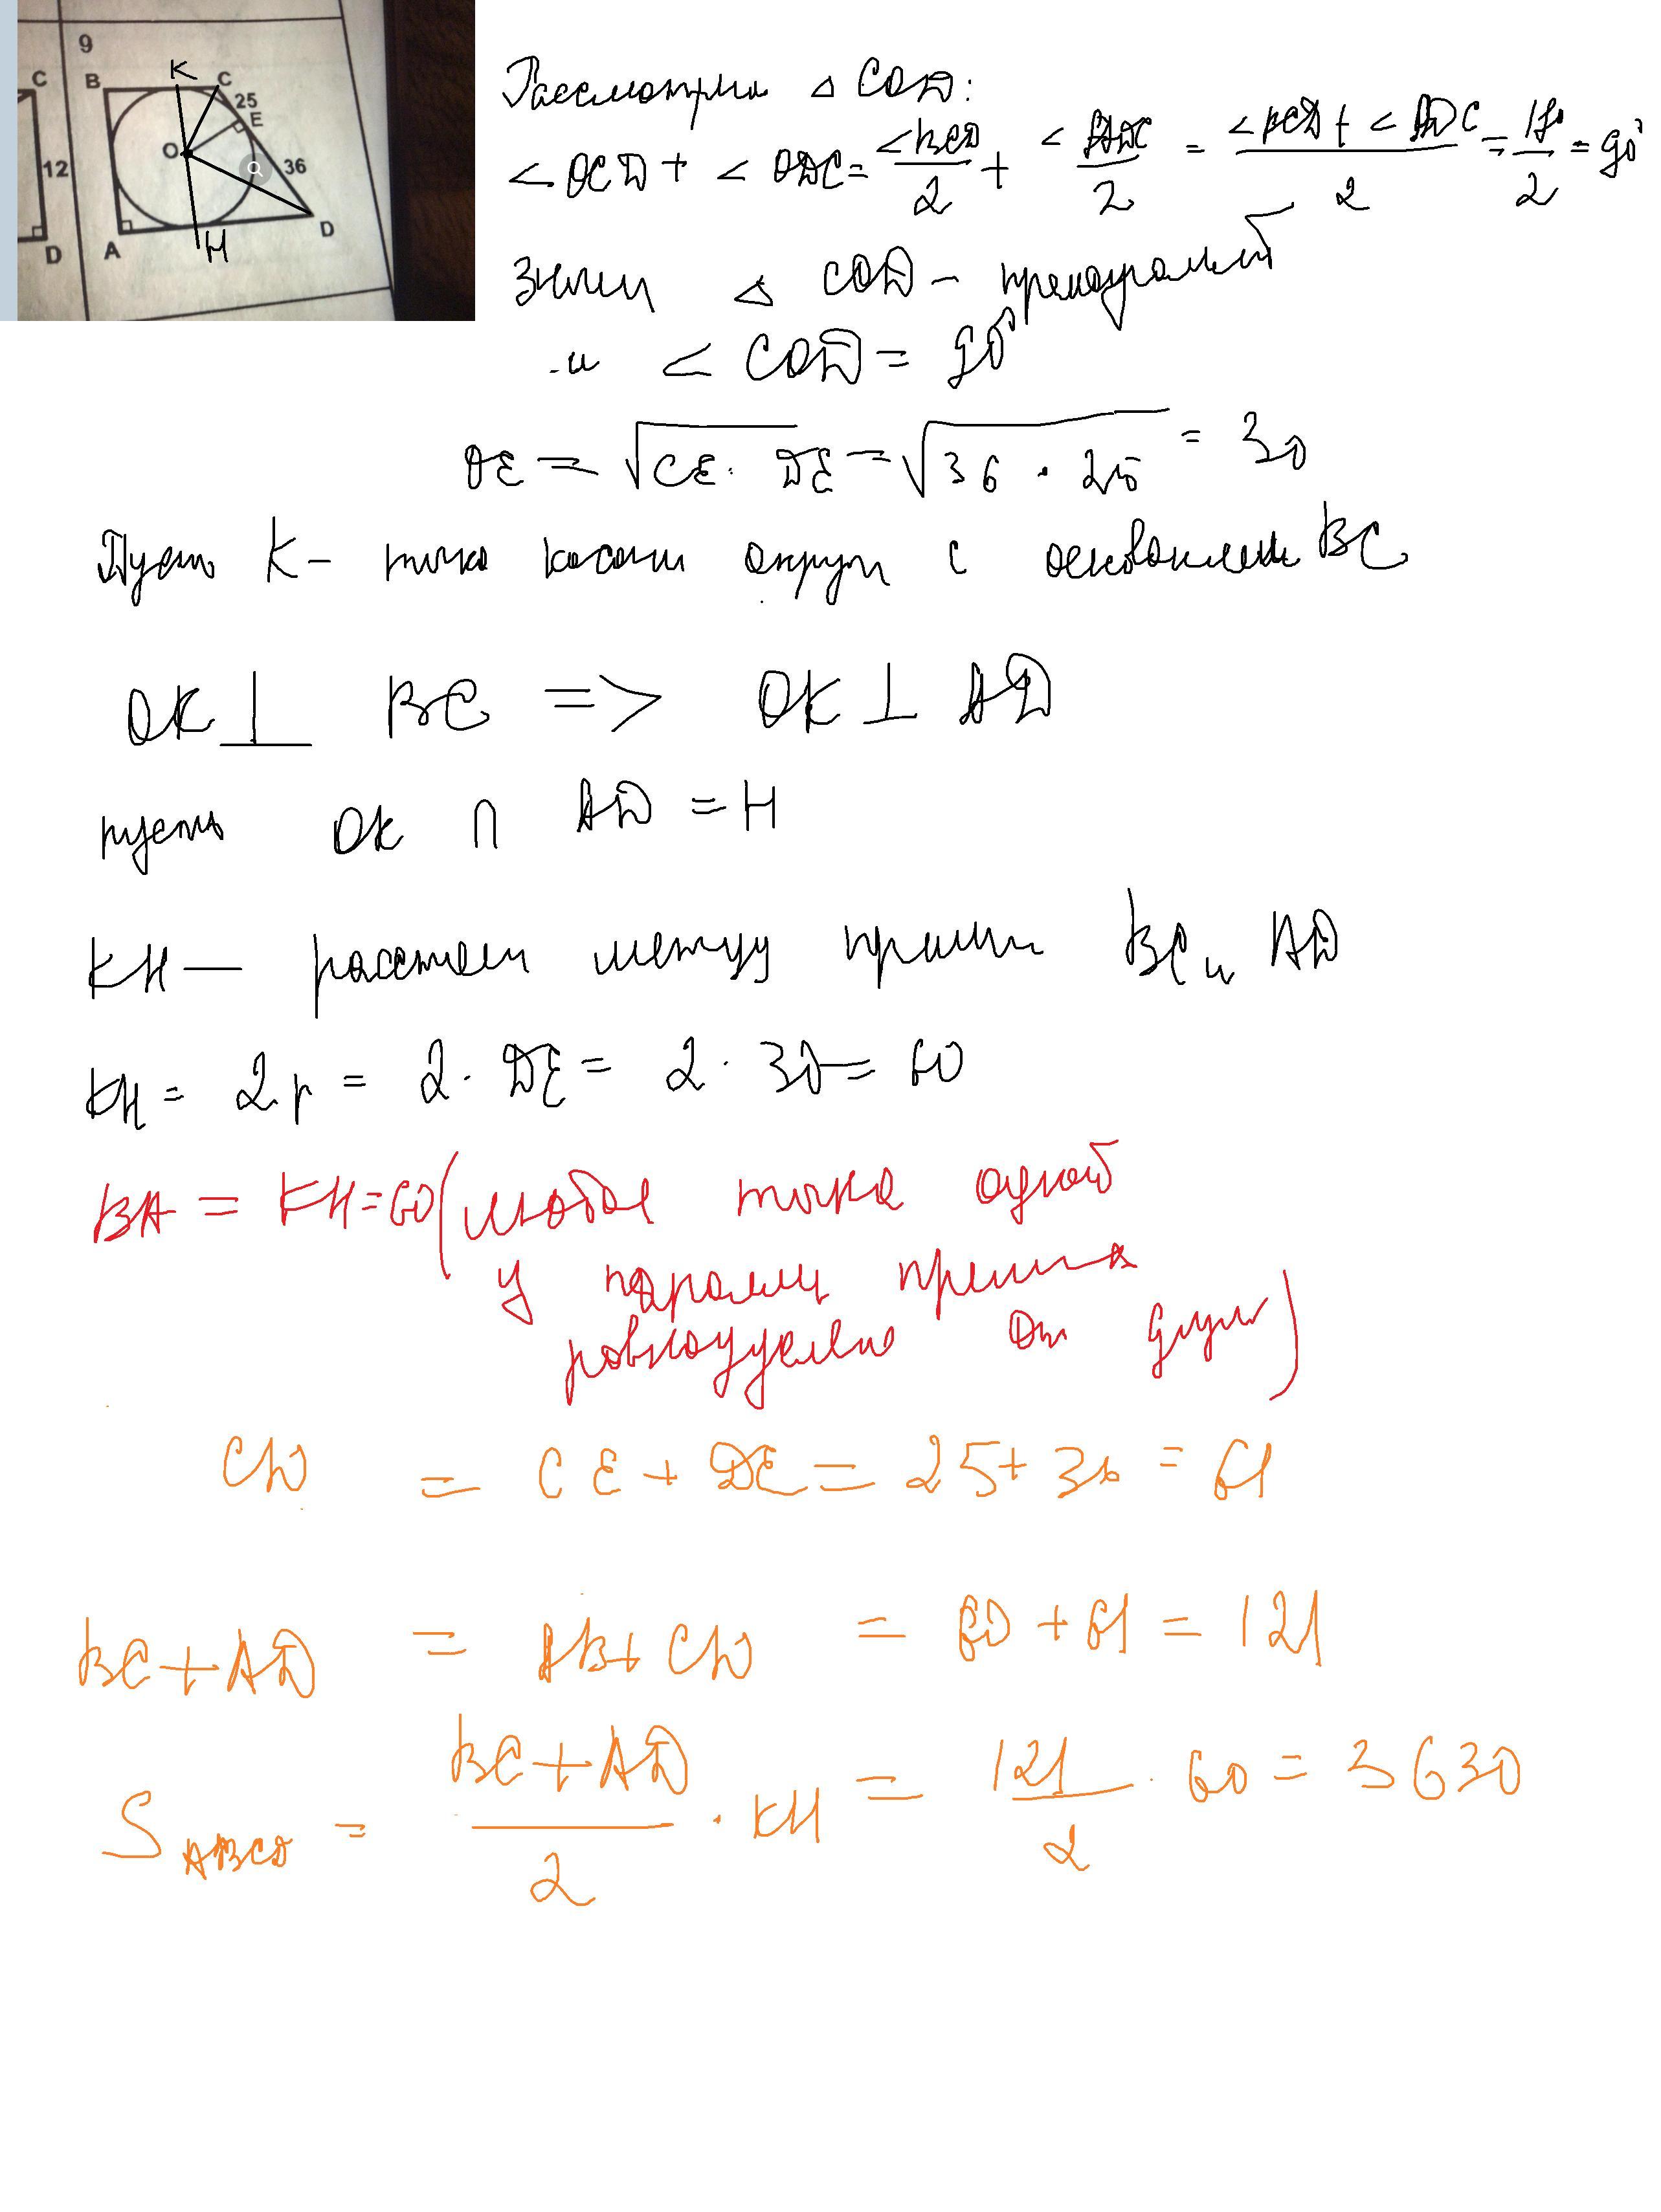 9
C B K C
25
E
O
12
36
D A H D
Рассмотрим △ COD:
<OCD + < ODC = <BCD/2 + <ADC/2 = <BCD + < ADC/2 = /2 = 90°
△ COD –
и < COD = 90°
OE = √CE · DE = √36 · 25 = 30
Пусть K – точка касан окруж с основанием BC
OK ⊥ BC => OK ⊥ AD
пусть OK ∩ AD = H
KH — расстоян между прямы BC и AD
KH = 2r = 2 · DE = 2 · 30 = 60
BA = KH = 60 (любая точка одной
у паралл прямых
равноудалена от другой)
CD = CE + DE = 25 + 36 = 61
BC + AD = AB + CD = 60 + 61 = 121
S ABCD = BC + AD/2 · KH = 121/2 · 60 = 3630